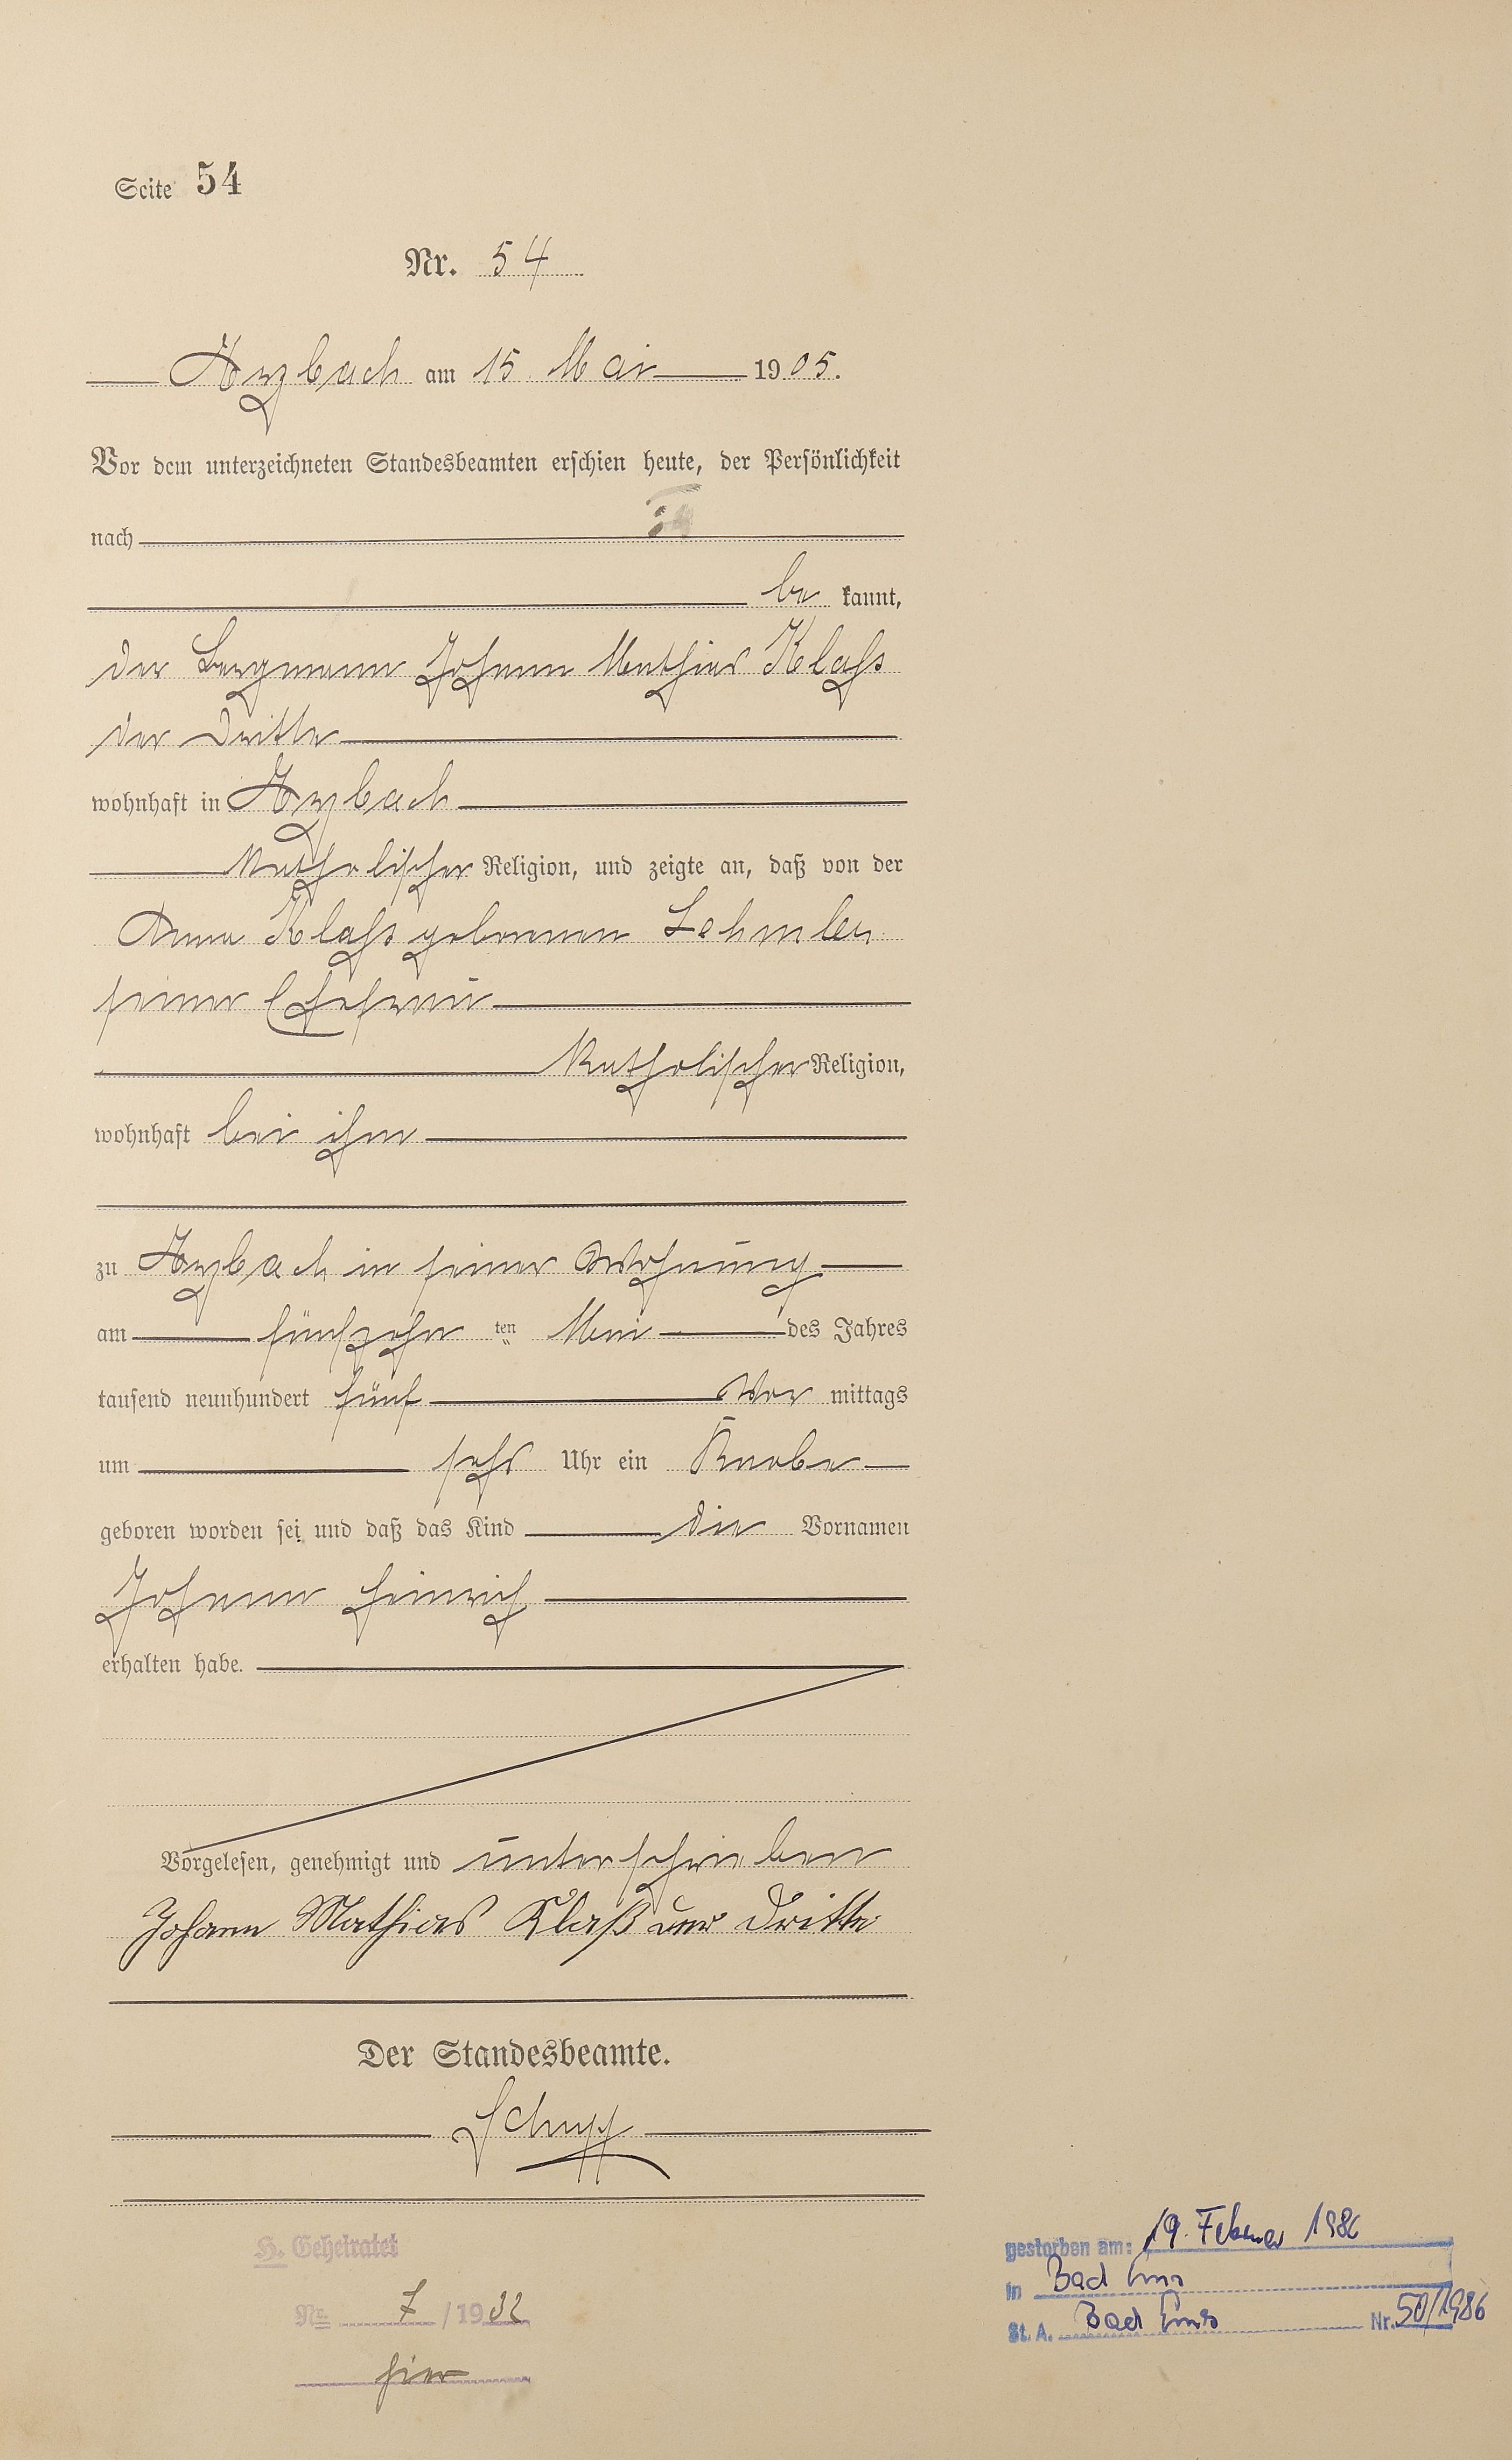 Seite 54
Nr. 54
Arzbach am 15. Mai 1905.
Vor dem unterzeichneten Standesbeamten erschien heute, der Persönlichkeit
nach
be kannt,
der Bergmann Johann Mathias Klaß
der Dritte
wohnhaft in Arzbach
katholischer Religion, und zeigte an, daß von der
Anna Klaß geborenen Lehmler
seiner Ehefrau
katholischer Religion,
wohnhaft bei ihm
zu Arzbach in seiner Wohnung
am fünfzehn ten Mai des Jahres
tausend neunhundert fünf Vor mittags
um sechs Uhr ein Knabe
geboren worden sei und daß das Kind die Vornamen
Johann Heinrich
erhalten habe.
Vorgelesen, genehmigt und unterschrieben
Johann Mathias Klaß der Dritte
Der Standesbeamte.
Schupp
H. Geheiratet
No. 7 / 1932
hier
gestorben am: 19. Februar 1986
in Bad Ems
St. A. Bad Ems Nr. 50/1986